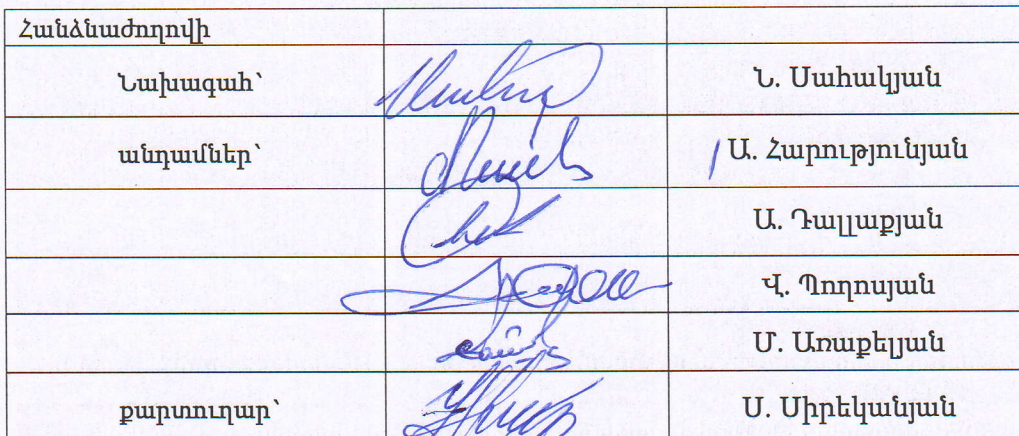 Հանձնաժողովի
Նախագահ՝ Ն. Սահակյան
անդամներ՝ Ա. Հարությունյան
Ա. Դալլաքյան
Վ. Պողոսյան
Մ. Առաքելյան
քարտուղար՝ Ս. Սիրեկանյան